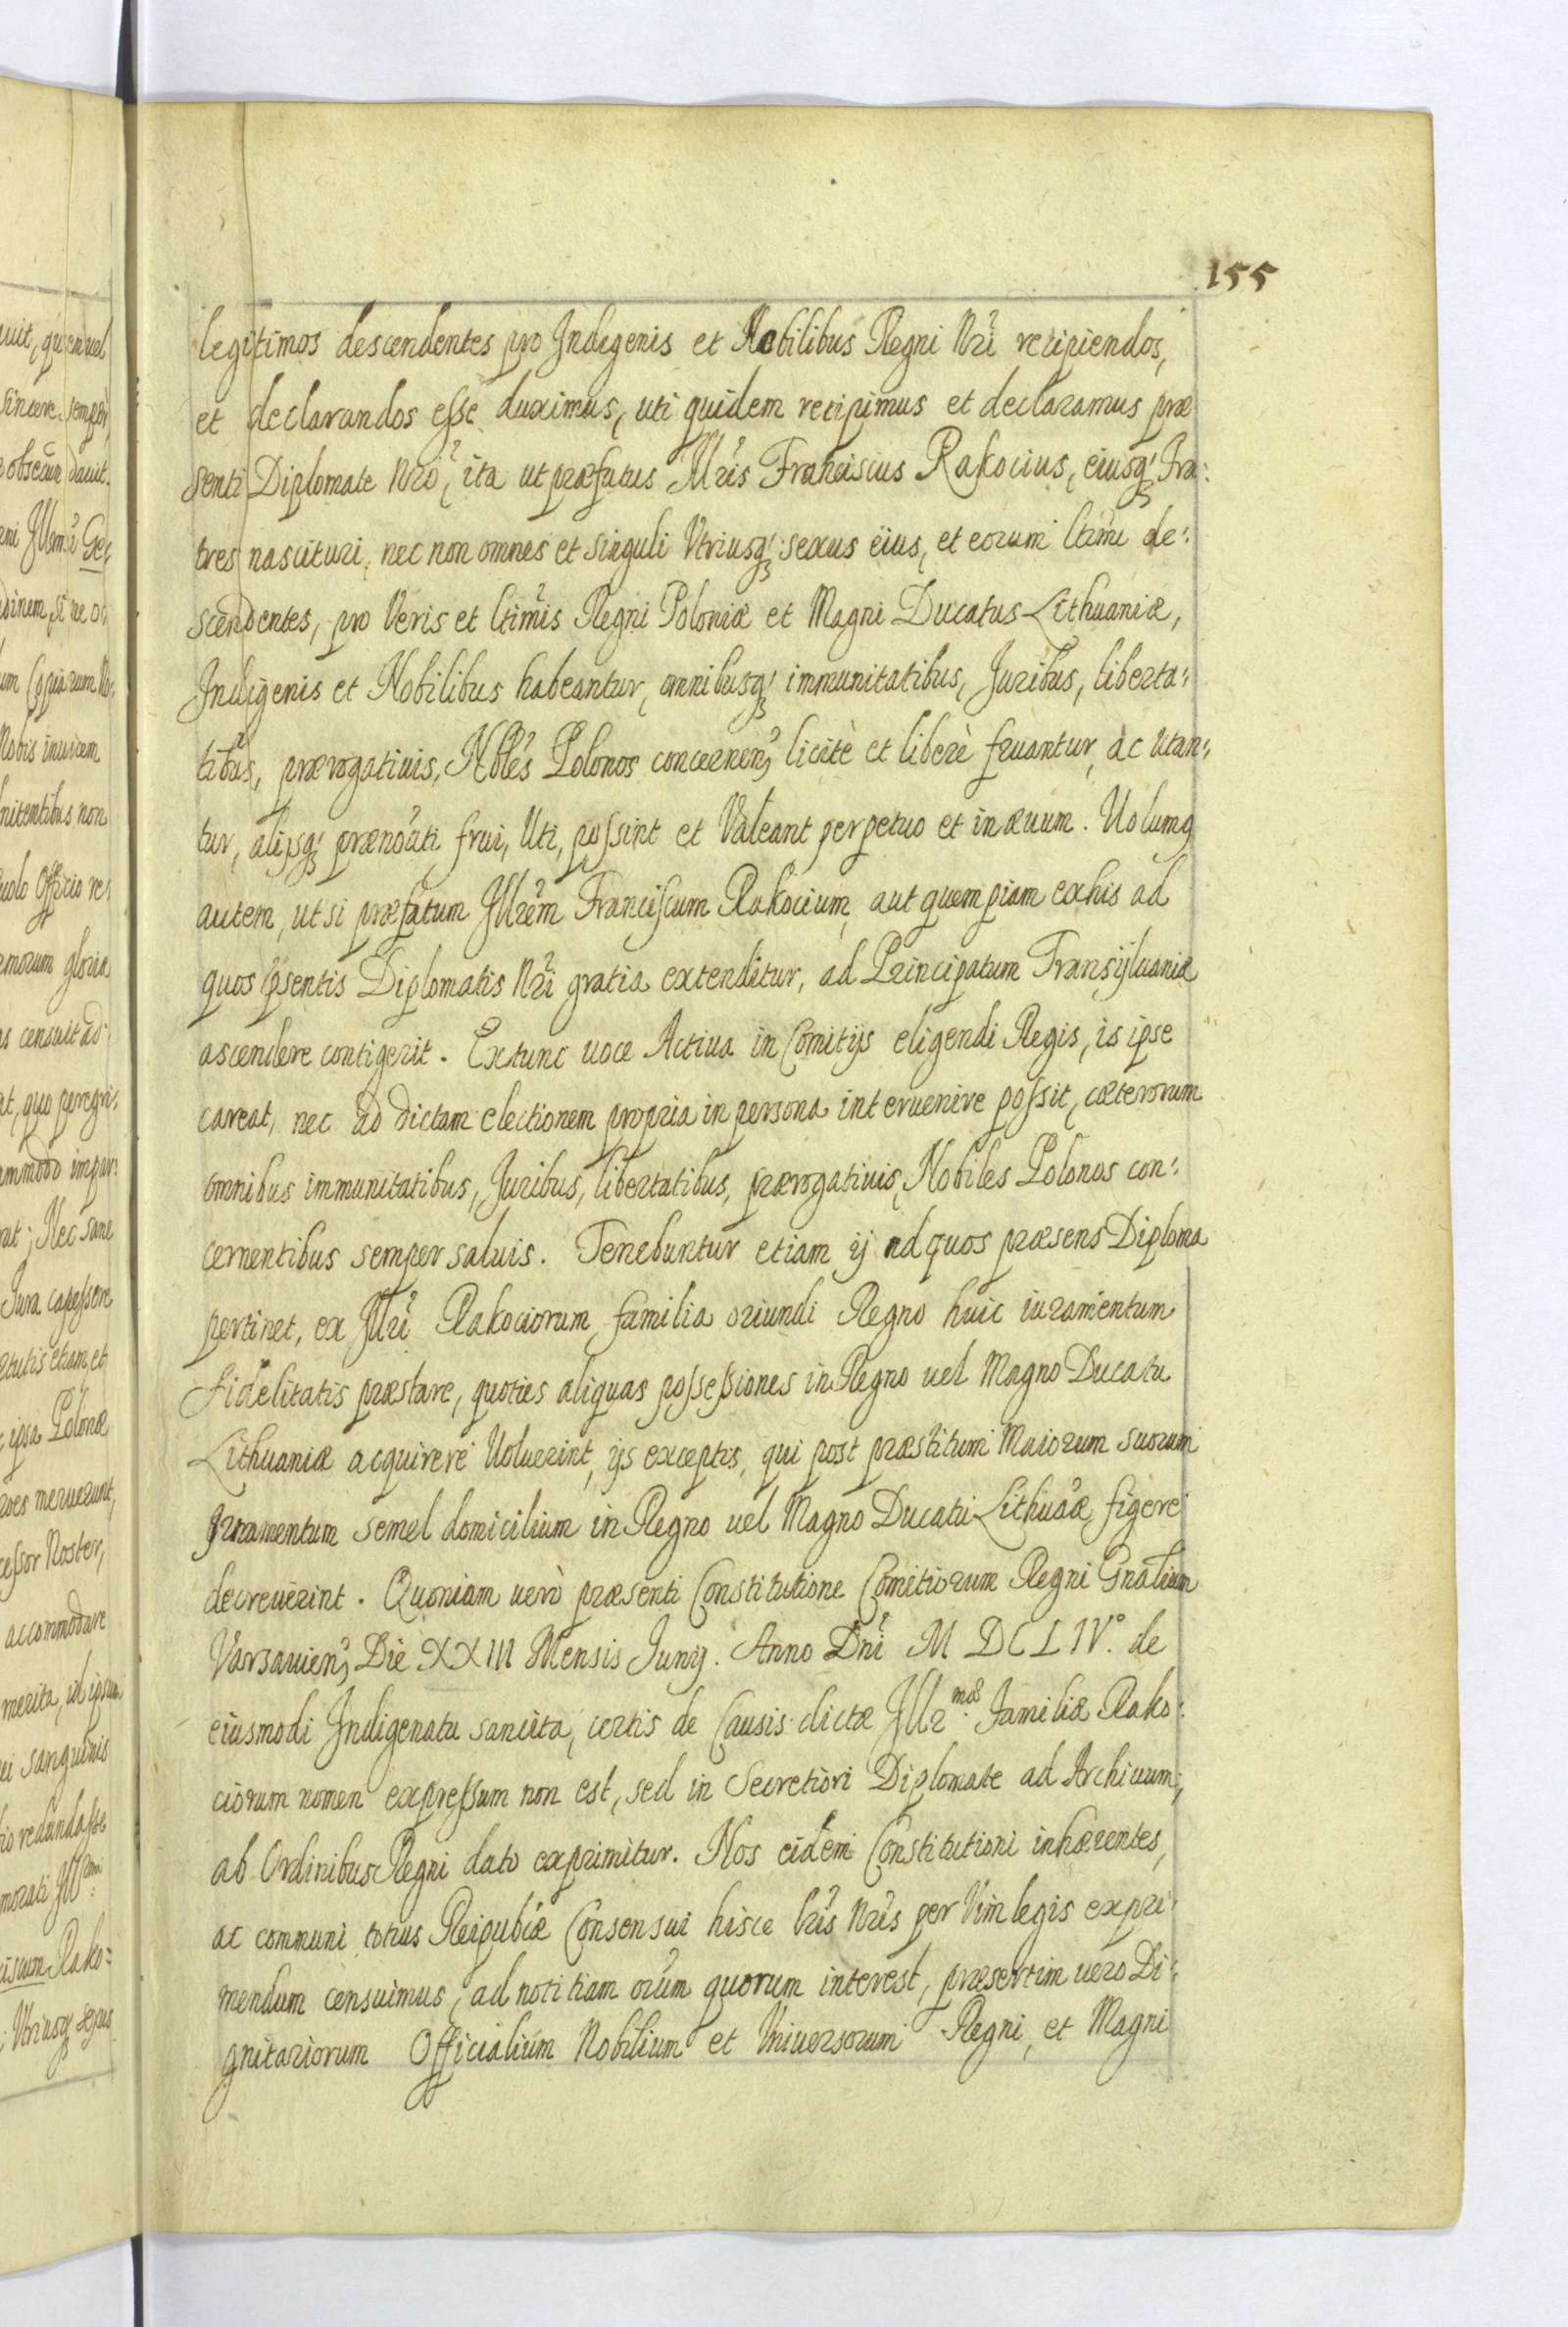 155
legitimos descendentes pro Indigenis et Nobilibus Regni Nri recipiendos,
et declarandos esse duximus, uti quidem recipimus et declaramus præ
senti Diplomate Nro, ita ut præfatus Illris Franciscus Rakocius, eiusq; Fra:
tres nascituri, nec non omnes et singuli Vtriusq; sexus eius, et eorum ltimi de:
scendentes, pro Veris et ltimis Regni Poloniæ et Magni Ducatus Lithuaniæ,
Indigenis et Nobilibus habeantur, omnibusq; immunitatibus, Juribus, liberta:
tibus, prærogatiuis, Nobles Polonos concernen; licitè et liberè fruantur, ac utan:
tur, alijsq; prænoati frui, Uti, possint et Valeant perpetuo et in æuum. Uolumq
autem, ut si præfatum Illrem Franciscum Rakocium, aut quempiam ex his ad
quos psentis Diplomatis Nri gratia extenditur, ad Principatum Transyluaniæ
ascendere contigerit. Extunc uoce Actiua in Comitijs eligendi Regis, is ipse
careat, nec ad dictam electionem propria in persona interuenire possit, cæterorum
omnibus immunitatibus, Juribus, libertatibus, prærogatiuis, Nobiles Polonos con:
cernentibus semper saluis. Tenebuntur etiam ij ad quos præsens Diploma
pertinet, ex Illri Rakociorum familia oriundi Regno huic iuramentum
fidelitatis præstare, quoties aliquas possessiones in Regno uel Magno Ducatu
Lithuaniæ acquirere Uoluerint, ijs exceptis, qui post præstitum Maiorum suorum
Juramentum semel domicilium in Regno uel Magno Ducatu Lithuãæ figere
decreuerint. Quoniam uerò præsenti Constitutione Comitiorum Regni Gnalium
Varsauien; Die XXIII Mensis Junij. Anno Dni M DCLIV.o de
eiusmodi Indigenatu sancita, certis de Causis dictæ Illr.mæ Familiæ Rako:
ciorum nomen expressum non est, sed in Secretiori Diplomate ad Archiuum,
ab Ordinibus Regni dato exprimitur. Nos eidem Constitutioni inhærentes,
ac communi totius Reipubcæ Consensui hisce lris Nris per Vim legis expri:
mendum censuimus, ad notitiam oium quorum interest, præsertim uero Di:
gnitariorum Officialium Nobilium et Vniuersorum Regni, et Magni